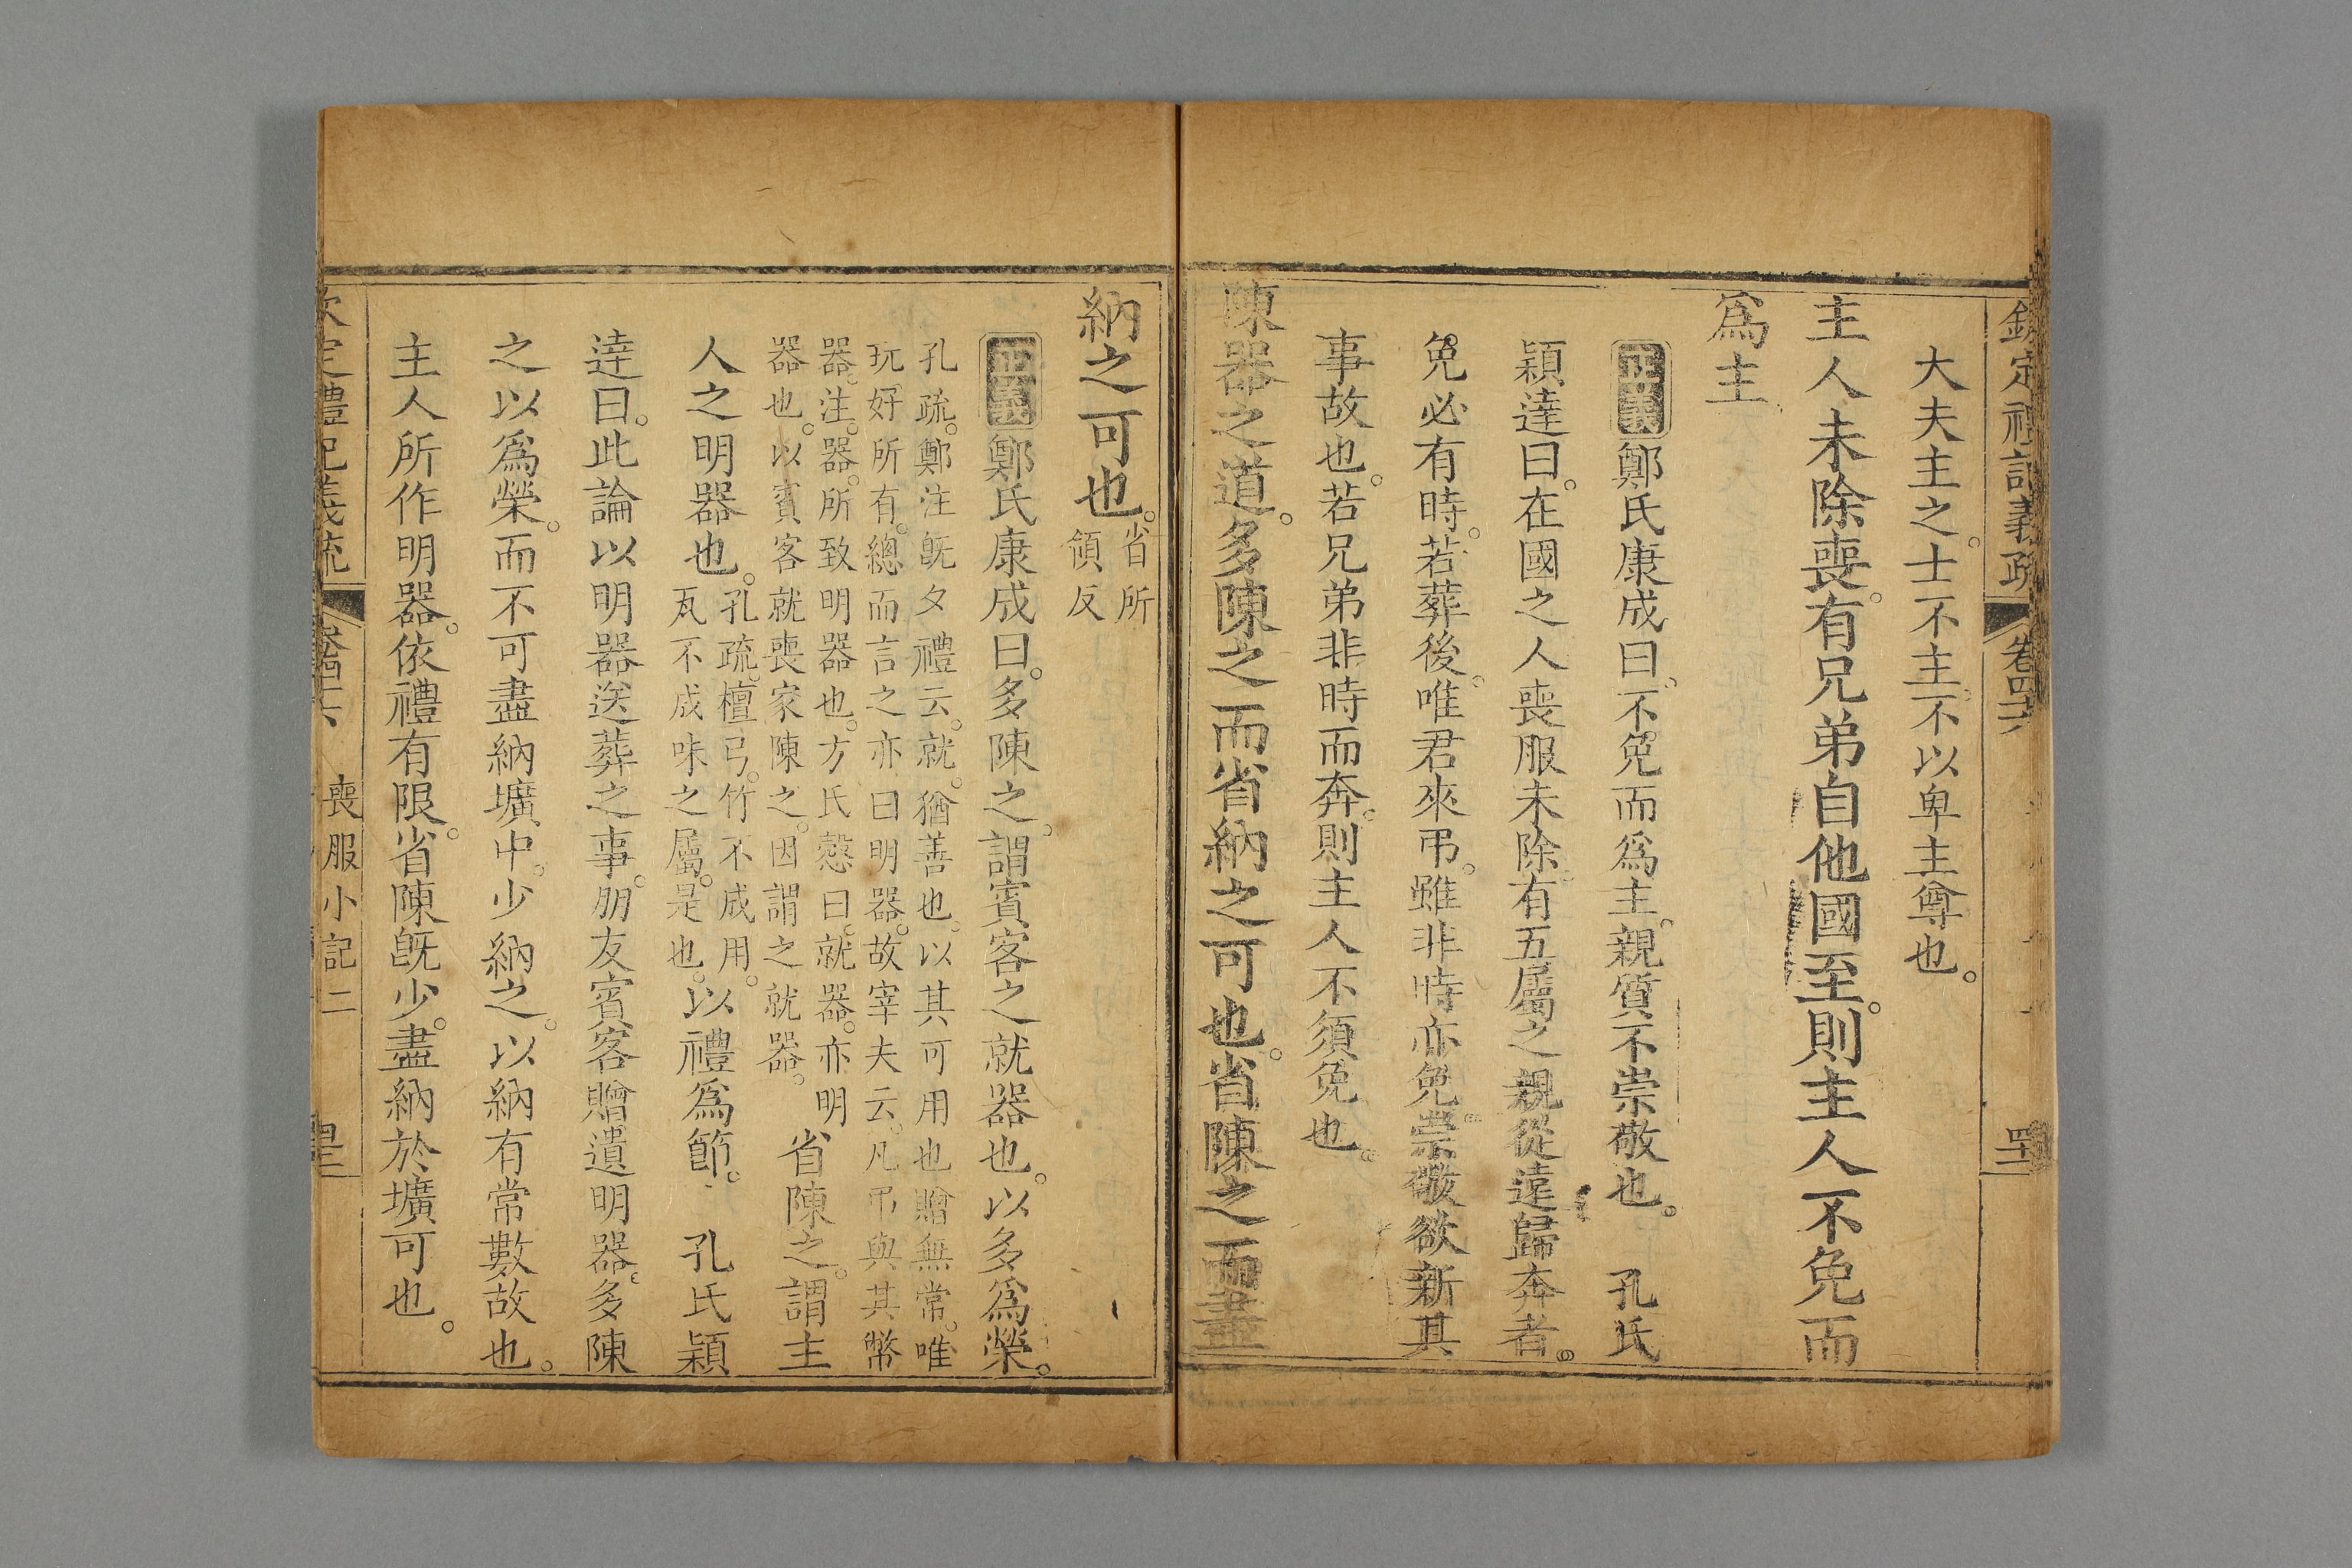 欽定禮記義疏 卷四十六 四十二
大夫主之。士不主。不以卑主尊也。
主人未除喪。有兄弟自他國至。則主人不免而
爲主
正義 鄭氏康成曰。不免而爲主。親質不崇敬也。 孔氏
穎達曰。在國之人喪服未除。有五屬之親從遠歸奔者。
免必有時。若葬後。唯君來弔。雖非時亦免。崇敬欲新其
事故也。若兄弟非時而奔。則主人不須免也。
陳器之道。多陳之而省納之可也。省陳之而盡
納之可也。省所
領反
正義 鄭氏康成曰。多陳之。謂賓客之就器也。以多爲榮。
孔疏。鄭注旣夕禮云。就。猶善也。以其可用也贈無常。唯
玩好所有。總而言之亦曰明器。故宰夫云。凡弔與其幣
器。注。器。所致明器也。方氏慤曰。就器。亦明
器也。以賓客就喪家陳之。因謂之就器。
省陳之。謂主
人之明器也。
孔疏。檀弓。竹不成用。
瓦不成味之屬。是也。
以禮爲節。 孔氏穎
達曰。此論以明器送葬之事。朋友賓客贈遺明器。多陳
之以爲榮。而不可盡納壙中。少納之。以納有常數故也。
主人所作明器。依禮有限。省陳旣少。盡納於壙可也。
欽定禮記義疏 卷四十六 喪服小記二 四十二